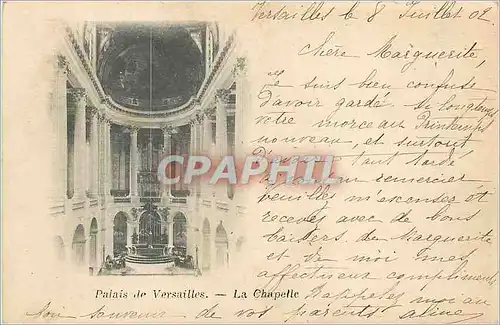 Versailles le 8 Juillet 02
Chère Marguerite,
Je suis bien confuse
d'avoir gardé si longtemps
votre morceau Printemps
nouveau, et surtout
d'avoir tant tardé
remercier
veuillez m'excuser et
recevez avec de bons
baisers de Marguerite
et de moi mes
affectueux compliments
Rappelez moi au
bon souvenir de vos parents aimés
CPARAMA.com
Palais de Versailles. — La Chapelle